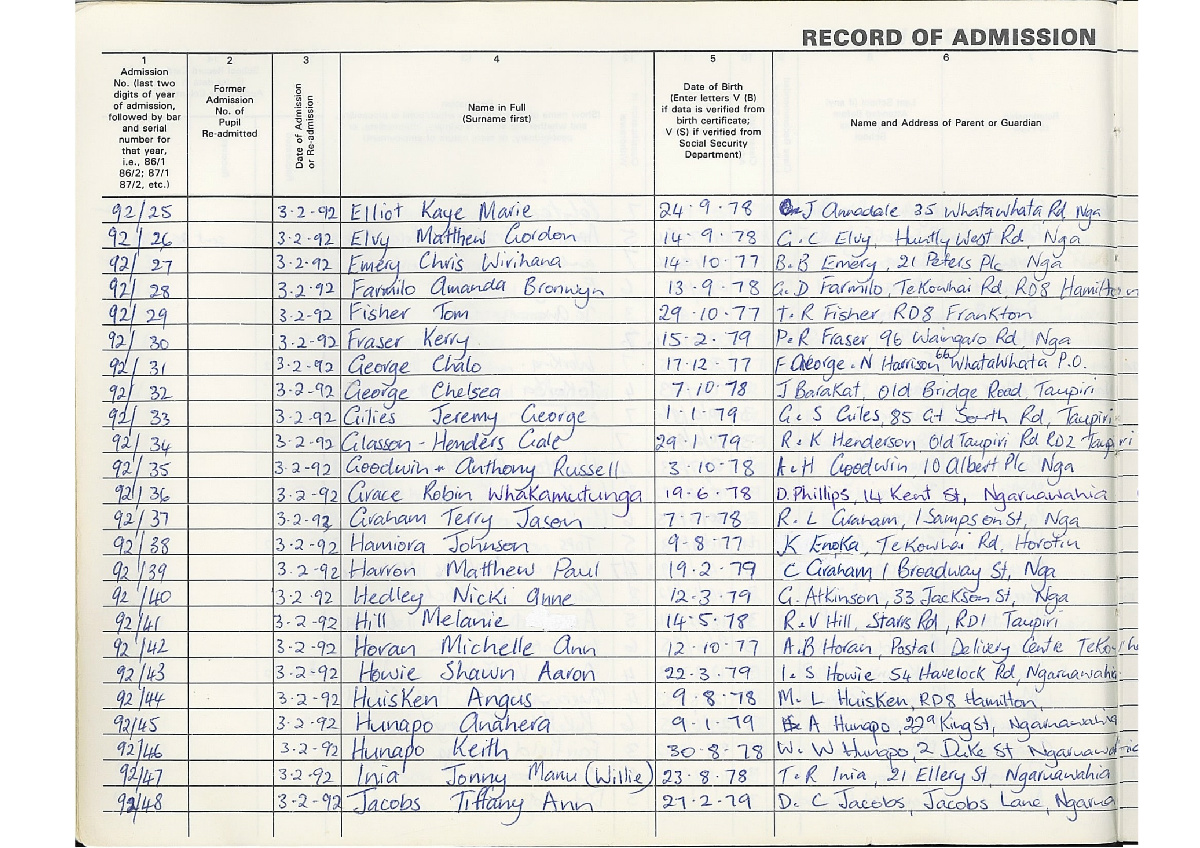 RECORD OF ADMISSION
1 2 3 4 5 6
Admission No. (last two digits of year of admission, followed by bar and serial number for that year, i.e., 86/1 86/2; 87/1 87/2, etc.)
Former Admission No. of Pupil Re-admitted
Date of Admission or Re-admission
Name in Full (Surname first)
Date of Birth (Enter letters V (B) if data is verified from birth certificate; V (S) if verified from Social Security Department)
Name and Address of Parent or Guardian
92/25 3-2-92 Elliot Kaye Marie 24·9·78 J Annadale 35 Whatawhata Rd Nga
92/26 3-2-92 Elvy Matthew Gordon 14·9·78 G.C Elvy, Huntly West Rd, Nga
92/27 3-2-92 Emery Chris Wirihana 14·10·77 B.B Emery, 21 Peters Plc Nga
92/28 3-2-92 Farmilo Amanda Bronwyn 13·9·78 G.D Farmilo, TeKowhai Rd, RD8 Hamilton
92/29 3-2-92 Fisher Tom 29·10·77 T.R Fisher, RD8 Frankton
92/30 3-2-92 Fraser Kerry 15·2·79 P.R Fraser 96 Waingaro Rd, Nga
92/31 3-2-92 George Chalo 17·12·77 F George . N Harrison 66 WhataWhata P.O.
92/32 3-2-92 George Chelsea 7·10·78 J Barakat, Old Bridge Road, Taupiri
92/33 3-2-92 Gilies Jeremy George 1·1·79 G.S Giles, 85 Gt South Rd, Taupiri
92/34 3-2-92 Glasson-Henders Gale 29·1·79 R.K Henderson, Old Taupiri Rd RD2 Taupiri
92/35 3-2-92 Goodwin Anthony Russell 3·10·78 A.H Goodwin 10 Albert Plc Nga
92/36 3-2-92 Grace Robin Whakamutunga 19·6·78 D. Phillips, 14 Kent St, Ngaruawahia
92/37 3-2-92 Graham Terry Jason 7·7·78 R.L Graham, 1 Sampson St, Nga
92/38 3-2-92 Hamiora Johnson 9·8·77 K Enoka, TeKowhai Rd, Horotiu
92/39 3-2-92 Harron Matthew Paul 19·2·79 C Graham 1 Broadway St, Nga
92/40 3-2-92 Hedley Nicki Anne 12·3·79 G. Atkinson, 33 Jackson St, Nga
92/41 3-2-92 Hill Melanie 14·5·78 R.V Hill, Starrs Rd, RD1 Taupiri
92/42 3-2-92 Horan Michelle Ann 12·10·77 A.B Horan, Postal Delivery Centre
92/43 3-2-92 Howie Shawn Aaron 22·3·79 I.S Howie 54 Havelock Rd, Ngaruawahia
92/44 3-2-92 Huisken Angus 9·8·78 M.L Huisken, RD8 Hamilton,
92/45 3-2-92 Hunapo Anahera 9·1·79 A Hunapo, 22a King St, Ngaruawahia
92/46 3-2-92 Hunapo Keith 30·8·78 W.W Hunapo, 2 Duke St Ngaruawahia
92/47 3-2-92 Inia Jonny Manu (Willie) 23·8·78 T.R Inia, 21 Ellery St Ngaruawahia
92/48 3-2-92 Jacobs Tiffany Ann 27·2·79 D.C Jacobs, Jacobs Lane, Ngarua